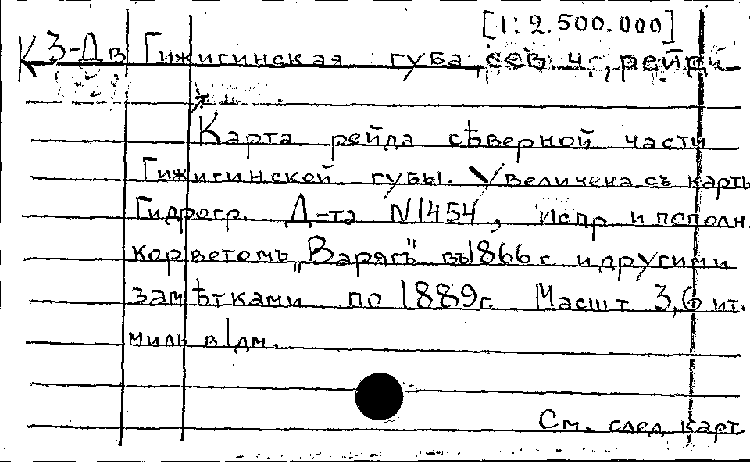 [1:2.500.000]
К 3-Дв Гижигинская губа, сев. ч., рейды
Карта рейда сѣверной части
Гижигинской губы. Увеличена съ карты
Гидрогр. Д-та N1454, испр. и пополн.
корветомъ „Варягъ" въ 1866 г. и другими
замѣтками по 1889 г. Масшт. 3,6 ит.
миль в 1 дм.
См. след. карт.